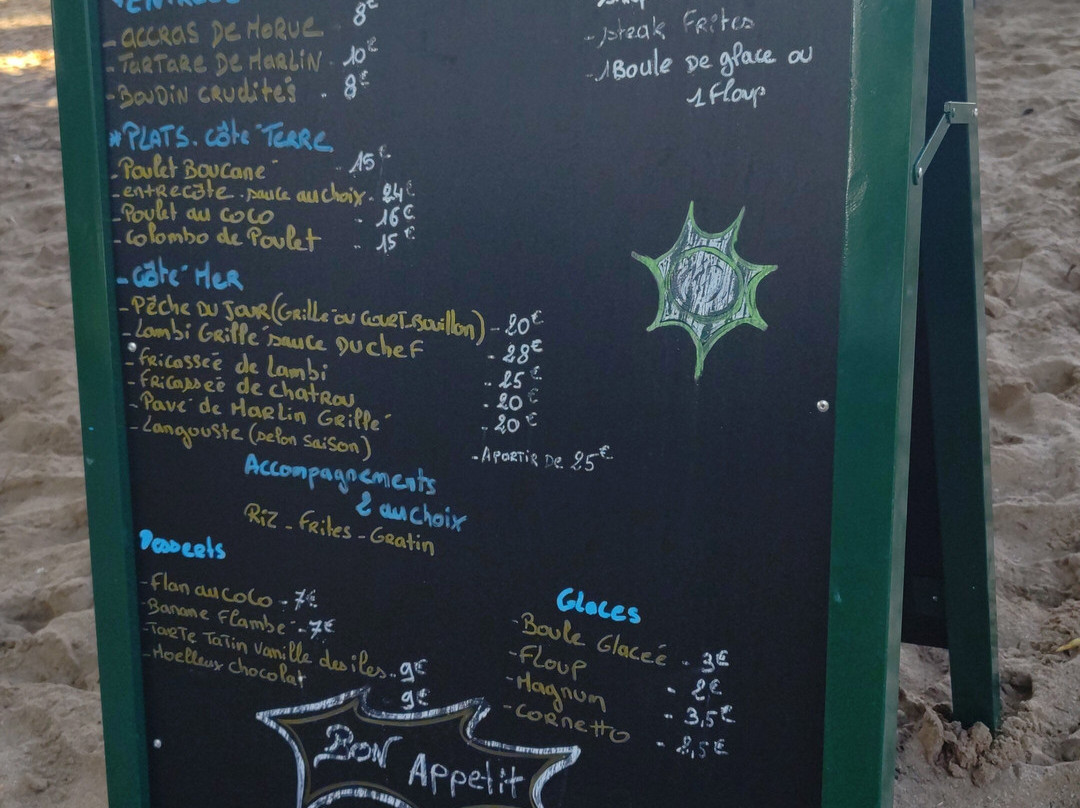 *ENTRÉES
- ACCRAS DE MORUE 8€
- TARTARE DE MARLIN - 10€
- BOUDIN CRUDITÉS - 8€
*PLATS. Côté TERRE
- Poulet Boucané - 15€
- entrecôte. sauce au choix - 24€
- Poulet au coco - 16€
- Colombo de Poulet - 15€
- Côté MER
- Pêche DU JOUR (Grillé ou COURT-Bouillon) - 20€
- Lambi Grillé sauce DU CHEF - 28€
- Fricasseé de Lambi - 25€
- Fricasseé de chatrou - 20€
- Pavé de MARLIN Grillé - 20€
- Langouste (selon saison) - A PARTIR DE 25€
Accompagnements
2 au choix
Riz - Frites - Gratin
Desserts
- Flan au coco - 7€
- Banane Flambé - 7€
- Tarte Tatin vanille des iles - 9€
- Moelleux chocolat 9€
- steak Frites
- 1 Boule de glace ou
1 Floup
Glaces
- Boule Glaceé - 3€
- Floup - 2€
- Magnum - 3,5€
- CORNETTO - 2,5€
BON Appetit